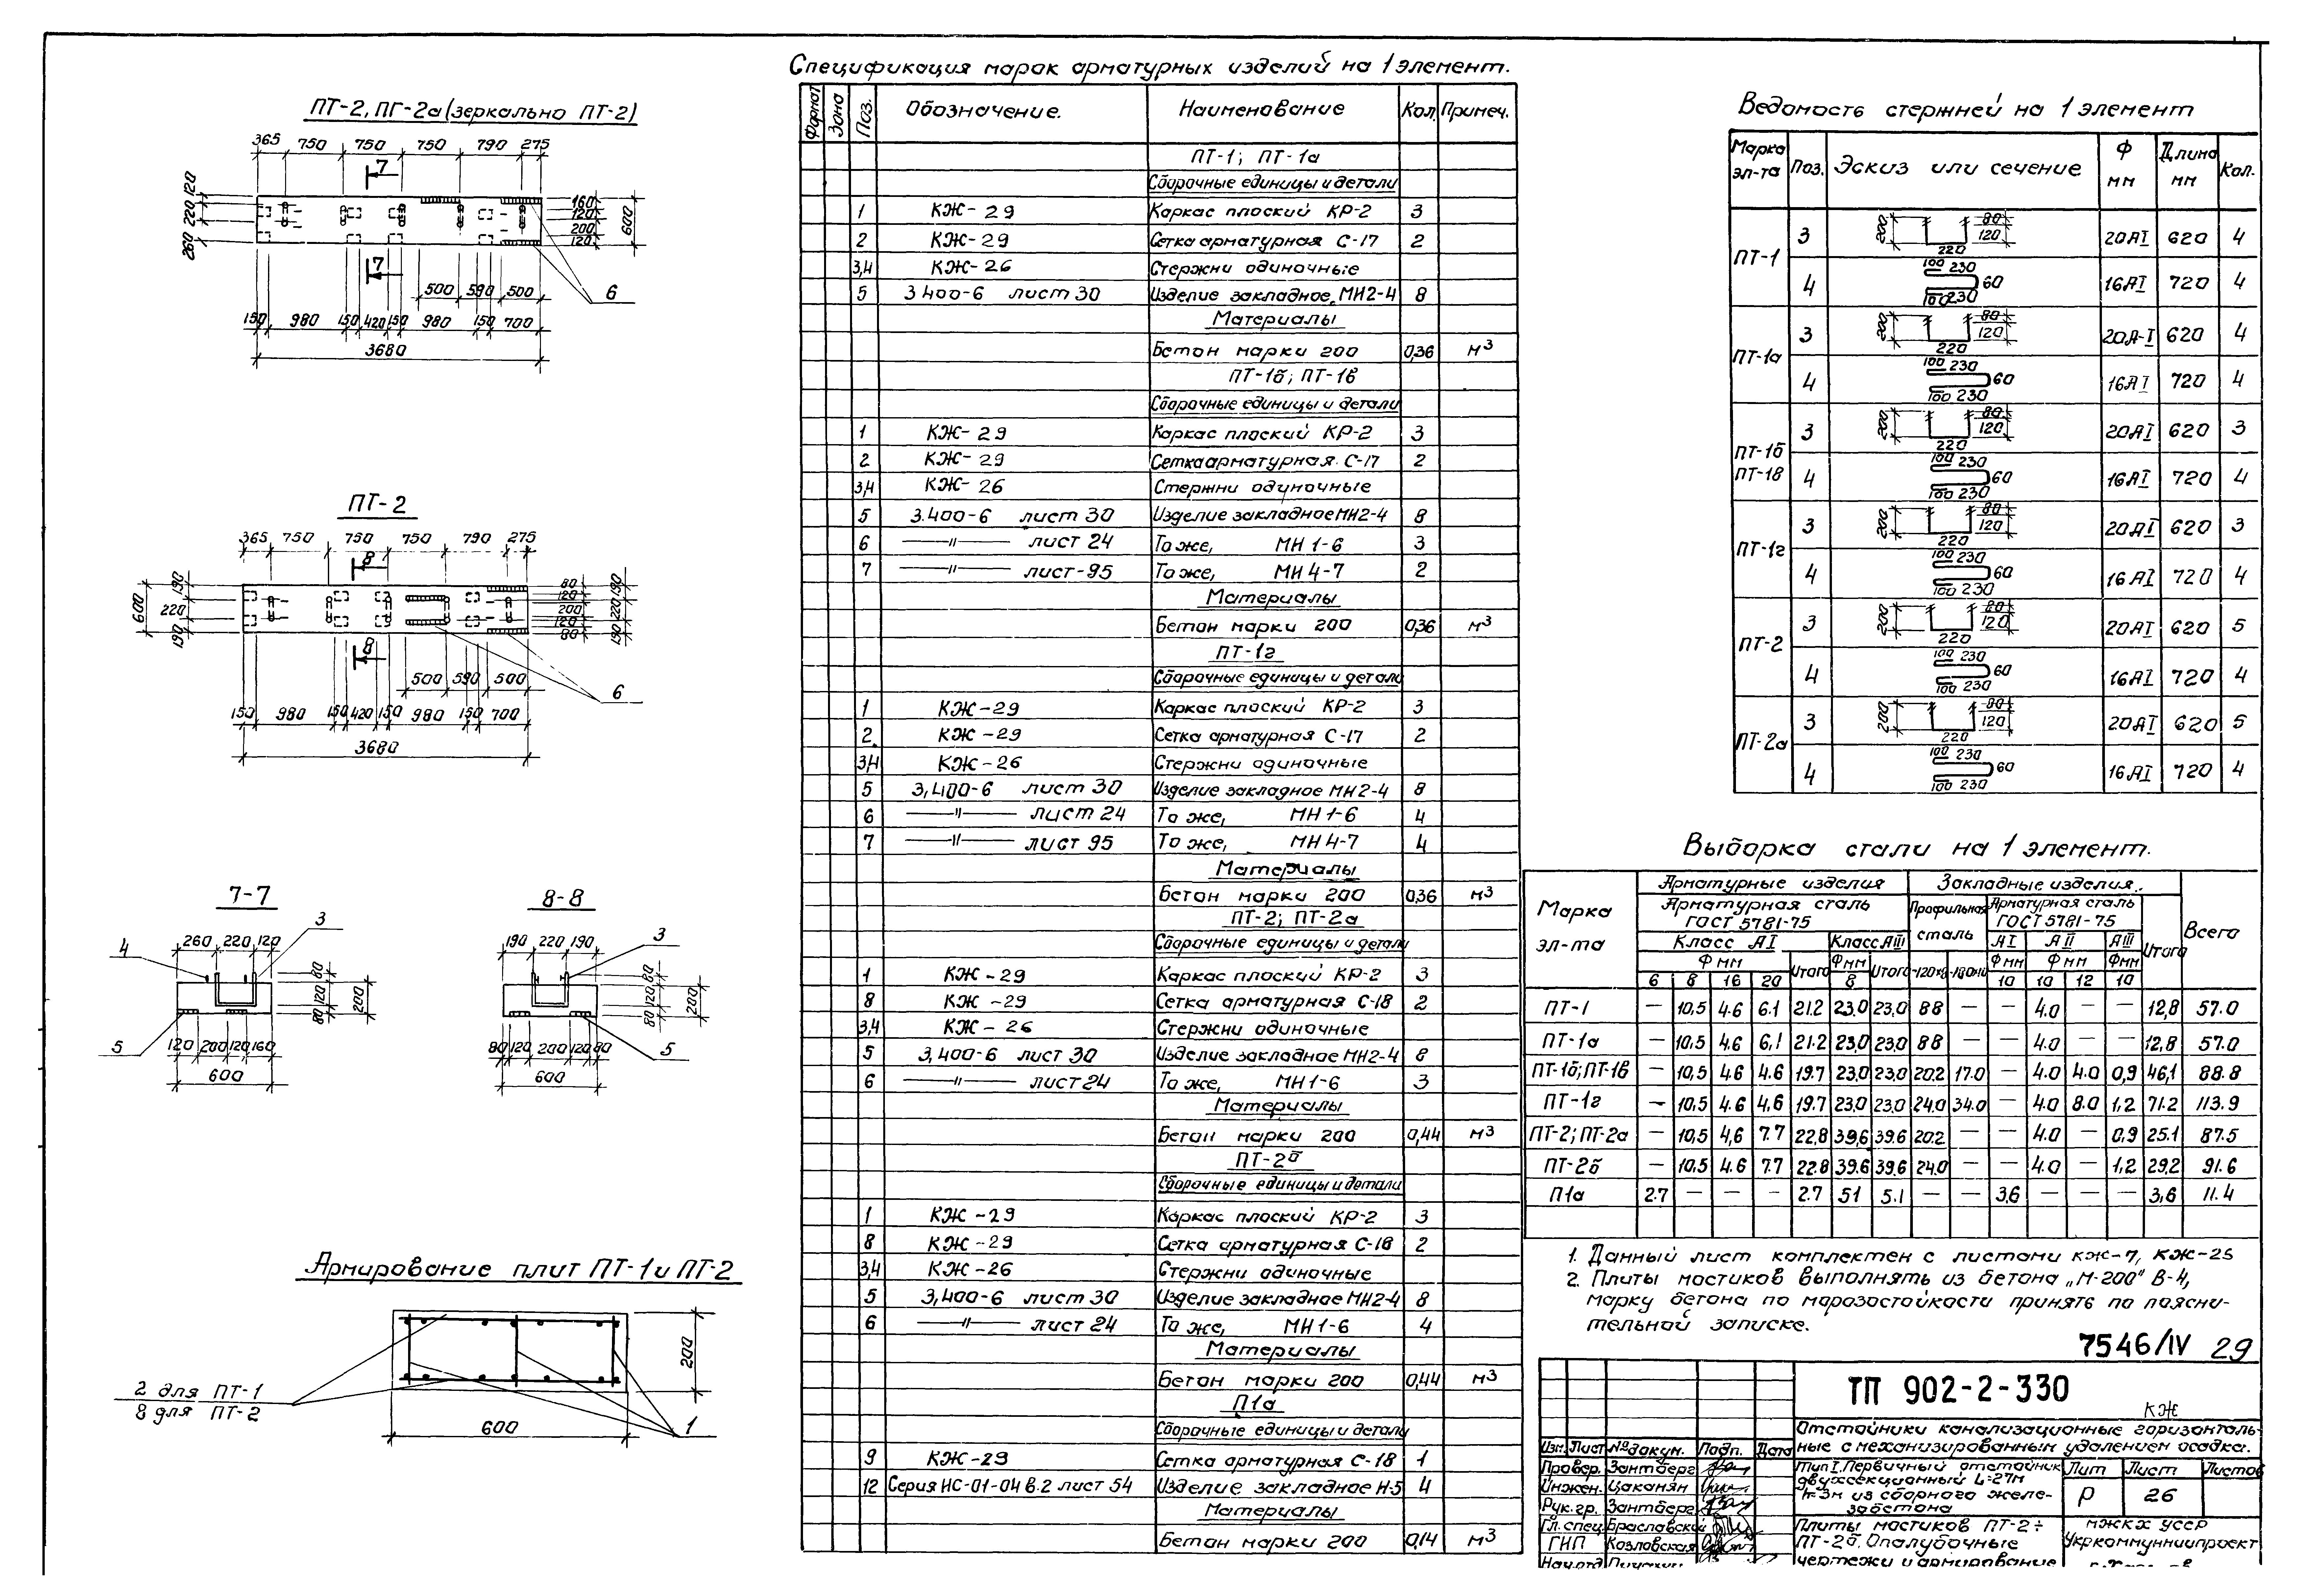 ПТ-2, ПГ-2а (зеркально ПТ-2)
365 750 750 750 790 275
7
120 220 260
160 120 200 120 600
7
500 590 500 6
150 980 150 420 150 980 150 700
3680
ПТ-2
365 750 750 750 790 275
8
600 190 220 190
80 120 200 120 80 190 220 190
8
500 590 500 6
150 980 150 420 150 980 150 700
3680
7-7
3
4
260 220 120
80 120 80 200
5
120 200 120 160
600
8-8
3
190 220 190
80 120 80 200
5
80 120 200 120 80
600
Армирование плит ПТ-1 и ПТ-2
200
2 для ПТ-1
8 для ПТ-2
600
1
Спецификация марок арматурных изделий на 1 элемент.
Формат Зона Поз. Обозначение. Наименование Кол. Примеч.
ПТ-1; ПТ-1а
Сборочные единицы и детали
1 КЖ-29 Каркас плоский КР-2 3
2 КЖ-29 Сетка арматурная С-17 2
3,4 КЖ-26 Стержни одиночные
5 3.400-6 лист 30 Изделие закладное МН2-4 8
Материалы
Бетон марки 200 0,36 м3
ПТ-1б; ПТ-1в
Сборочные единицы и детали
1 КЖ-29 Каркас плоский КР-2 3
2 КЖ-29 Сетка арматурная С-17 2
3,4 КЖ-26 Стержни одиночные
5 3.400-6 лист 30 Изделие закладное МН2-4 8
6 —"— лист 24 То же, МН 1-6 3
7 —"— лист-95 То же, МН 4-7 2
Материалы
Бетон марки 200 0,36 м3
ПТ-1г
Сборочные единицы и детали
1 КЖ-29 Каркас плоский КР-2 3
2 КЖ-29 Сетка арматурная С-17 2
3,4 КЖ-26 Стержни одиночные
5 3,400-6 лист 30 Изделие закладное МН2-4 8
6 —"— лист 24 То же, МН 1-6 4
7 —"— лист 95 То же, МН 4-7 4
Материалы
Бетон марки 200 0,36 м3
ПТ-2; ПТ-2а
Сборочные единицы и детали
1 КЖ-29 Каркас плоский КР-2 3
8 КЖ-29 Сетка арматурная С-18 2
3,4 КЖ-26 Стержни одиночные
5 3,400-6 лист 30 Изделие закладное МН2-4 8
6 —"— лист 24 То же, МН 1-6 3
Материалы
Бетон марки 200 0,44 м3
ПТ-2б
Сборочные единицы и детали
1 КЖ-29 Каркас плоский КР-2 3
8 КЖ-29 Сетка арматурная С-18 2
3,4 КЖ-26 Стержни одиночные
5 3,400-6 лист 30 Изделие закладное МН2-4 8
6 —"— лист 24 То же, МН 1-6 4
Материалы
Бетон марки 200 0,44 м3
П1а
Сборочные единицы и детали
9 КЖ-29 Сетка арматурная С-18 1
12 Серия ИС-01-04 в.2 лист 54 Изделие закладное Н-5 4
Материалы
Бетон марки 200 0,14 м3
Ведомость стержней на 1 элемент
Марка эл-та Поз. Эскиз или сечение Ф мм Длина мм Кол.
ПТ-1 3 200 80 120 220 20АI 620 4
4 100 230 60 100 230 16АI 720 4
ПТ-1а 3 200 80 120 220 20А-I 620 4
4 100 230 60 100 230 16АI 720 4
ПТ-1б ПТ-1в 3 200 80 120 220 20АI 620 3
4 100 230 60 100 230 16АI 720 4
ПТ-1г 3 200 80 120 220 20АI 620 3
4 100 230 60 100 230 16АI 720 4
ПТ-2 3 200 80 120 220 20АI 620 5
4 100 230 60 100 230 16АI 720 4
ПТ-2а 3 200 80 120 220 20АI 620 5
4 100 230 60 100 230 16АI 720 4
Выборка стали на 1 элемент.
Марка эл-та Арматурные изделия Закладные изделия. Всего
Арматурная сталь ГОСТ 5781-75 Профильная сталь Арматурная сталь ГОСТ 5781-75 Итого
Класс АI Класс АIII АI АII АIII
Ф мм Итого Ф мм Итого Ф мм Ф мм Ф мм
6 8 16 20 8 10 10 12 10
ПТ-1 — 10,5 4.6 6.1 21.2 23.0 23,0 88 — — 4.0 — 12,8 57.0
ПТ-1а — 10,5 4.6 6,1 21.2 23,0 23,0 88 — — 4.0 — — 12,8 57.0
ПТ-1б; ПТ-1в — 10,5 4.6 4.6 19.7 23,0 23,0 20.2 17.0 — 4.0 4.0 0,9 46,1 88.8
ПТ-1г — 10,5 4.6 4,6 19.7 23,0 23,0 24,0 34.0 — 4.0 8.0 1,2 71.2 113.9
ПТ-2; ПТ-2а — 10,5 4,6 7.7 22,8 39,6 39.6 20.2 — — 4.0 — 0,9 25.1 87.5
ПТ-2б — 10,5 4.6 7.7 22.8 39.6 39,6 24,0 — — 4.0 — 1,2 29.2 91.6
П1а 2.7 — — — 2.7 51 5.1 — — 3,6 — — — 3,6 11.4
1. Данный лист комплектен с листами КЖ-7, КЖ-25
2. Плиты мостиков выполнять из бетона „М-200" В-4,
марку бетона по морозостойкости принять по поясни-
тельной записке.
7546/IV 29
ТП 902-2-330
КЖ
Отстойники канализационные горизонталь-
ные с механизированным удалением осадка.
Изм. Лист №докум. Подп. Дата
Провер. Зантберг
Инжен. Цаканян
Рук. гр. Зантберг
Гл. спец. Браславский
ГИП Козловская
Нач.отд.
Тип I. Первичный отстойник
двухсекционный L=27м
h=3м из сборного желе-
зобетона
Лит Лист Листов
Р 26
Плиты мостиков ПТ-2÷
ПТ-2б. Опалубочные
чертежи и армирование
МЖКХ УССР
Укркоммунниипроект